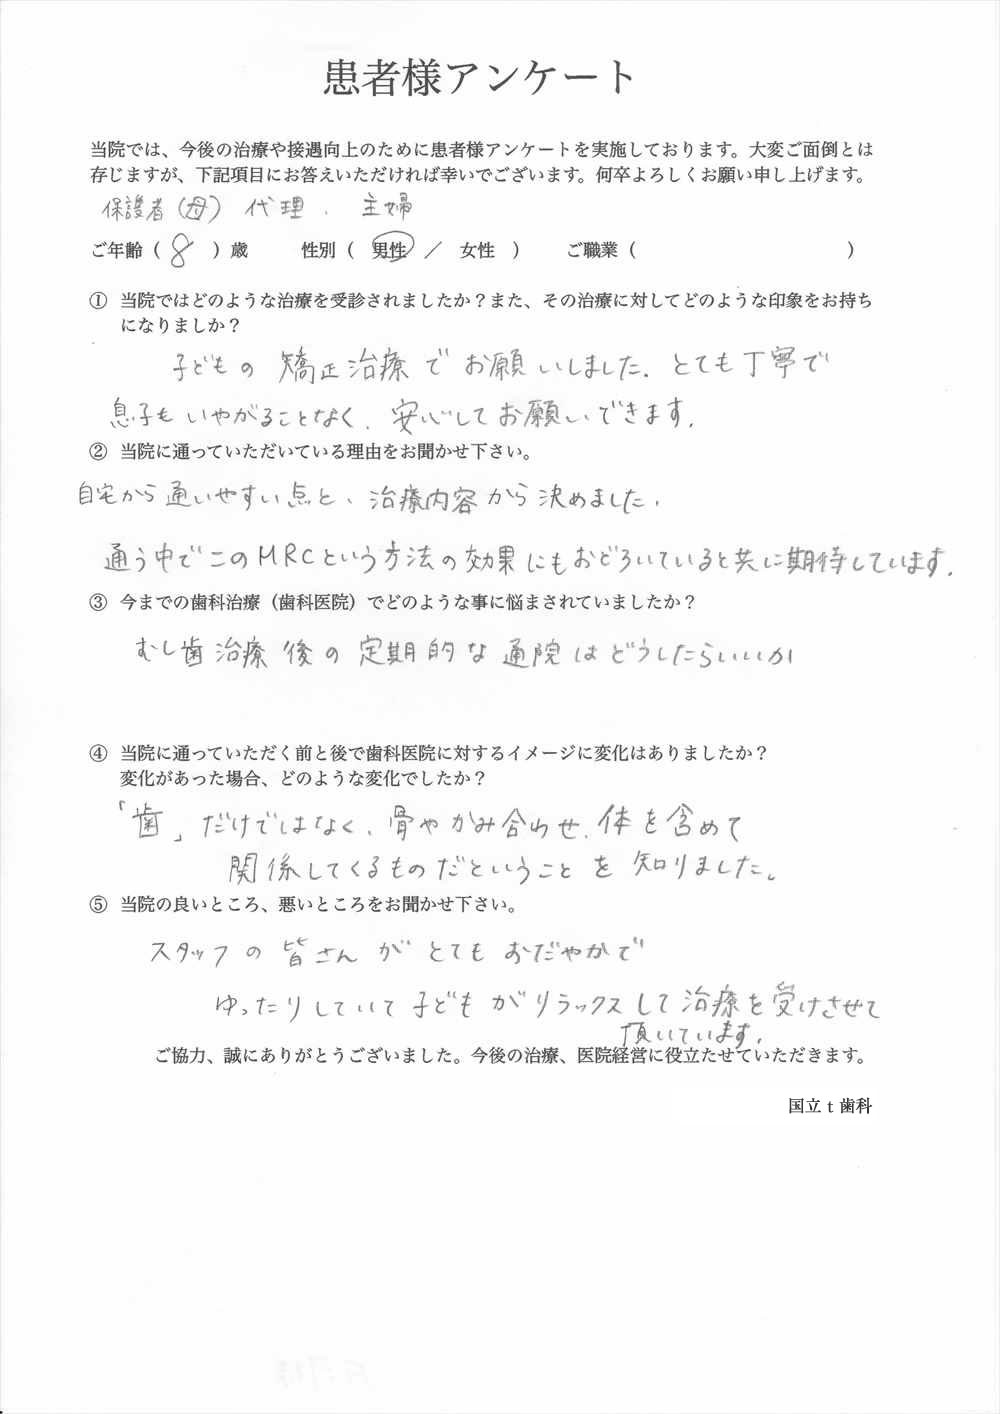 患者様アンケート
当院では、今後の治療や接遇向上のために患者様アンケートを実施しております。大変ご面倒とは
存じますが、下記項目にお答えいただければ幸いでございます。何卒よろしくお願い申し上げます。
保護者(母) 代理. 主婦
ご年齢（ 8 ）歳 性別（ 男性 ／ 女性 ） ご職業（ ）
① 当院ではどのような治療を受診されましたか？また、その治療に対してどのような印象をお持ち
になりましか？
子どもの 矯正治療で お願いしました. とても丁寧で
息子も いやがることなく. 安心してお願いできます.
② 当院に通っていただいている理由をお聞かせ下さい。
自宅から通いやすい点と、治療内容から決めました.
通う中でこのMRCという方法の効果にもおどろいていると共に期待しています.
③ 今までの歯科治療（歯科医院）でどのような事に悩まされていましたか？
むし歯治療後の定期的な通院はどうしたらいいか
④ 当院に通っていただく前と後で歯科医院に対するイメージに変化はありましたか？
変化があった場合、どのような変化でしたか？
「歯」だけではなく、骨やかみ合わせ. 体を含めて
関係してくるものだということを知りました。
⑤ 当院の良いところ、悪いところをお聞かせ下さい。
スタッフの皆さんがとてもおだやかで
ゆったりしていて子どもがリラックスして治療を受けさせて
頂いています.
ご協力、誠にありがとうございました。今後の治療、医院経営に役立たせていただきます。
国立 t 歯科